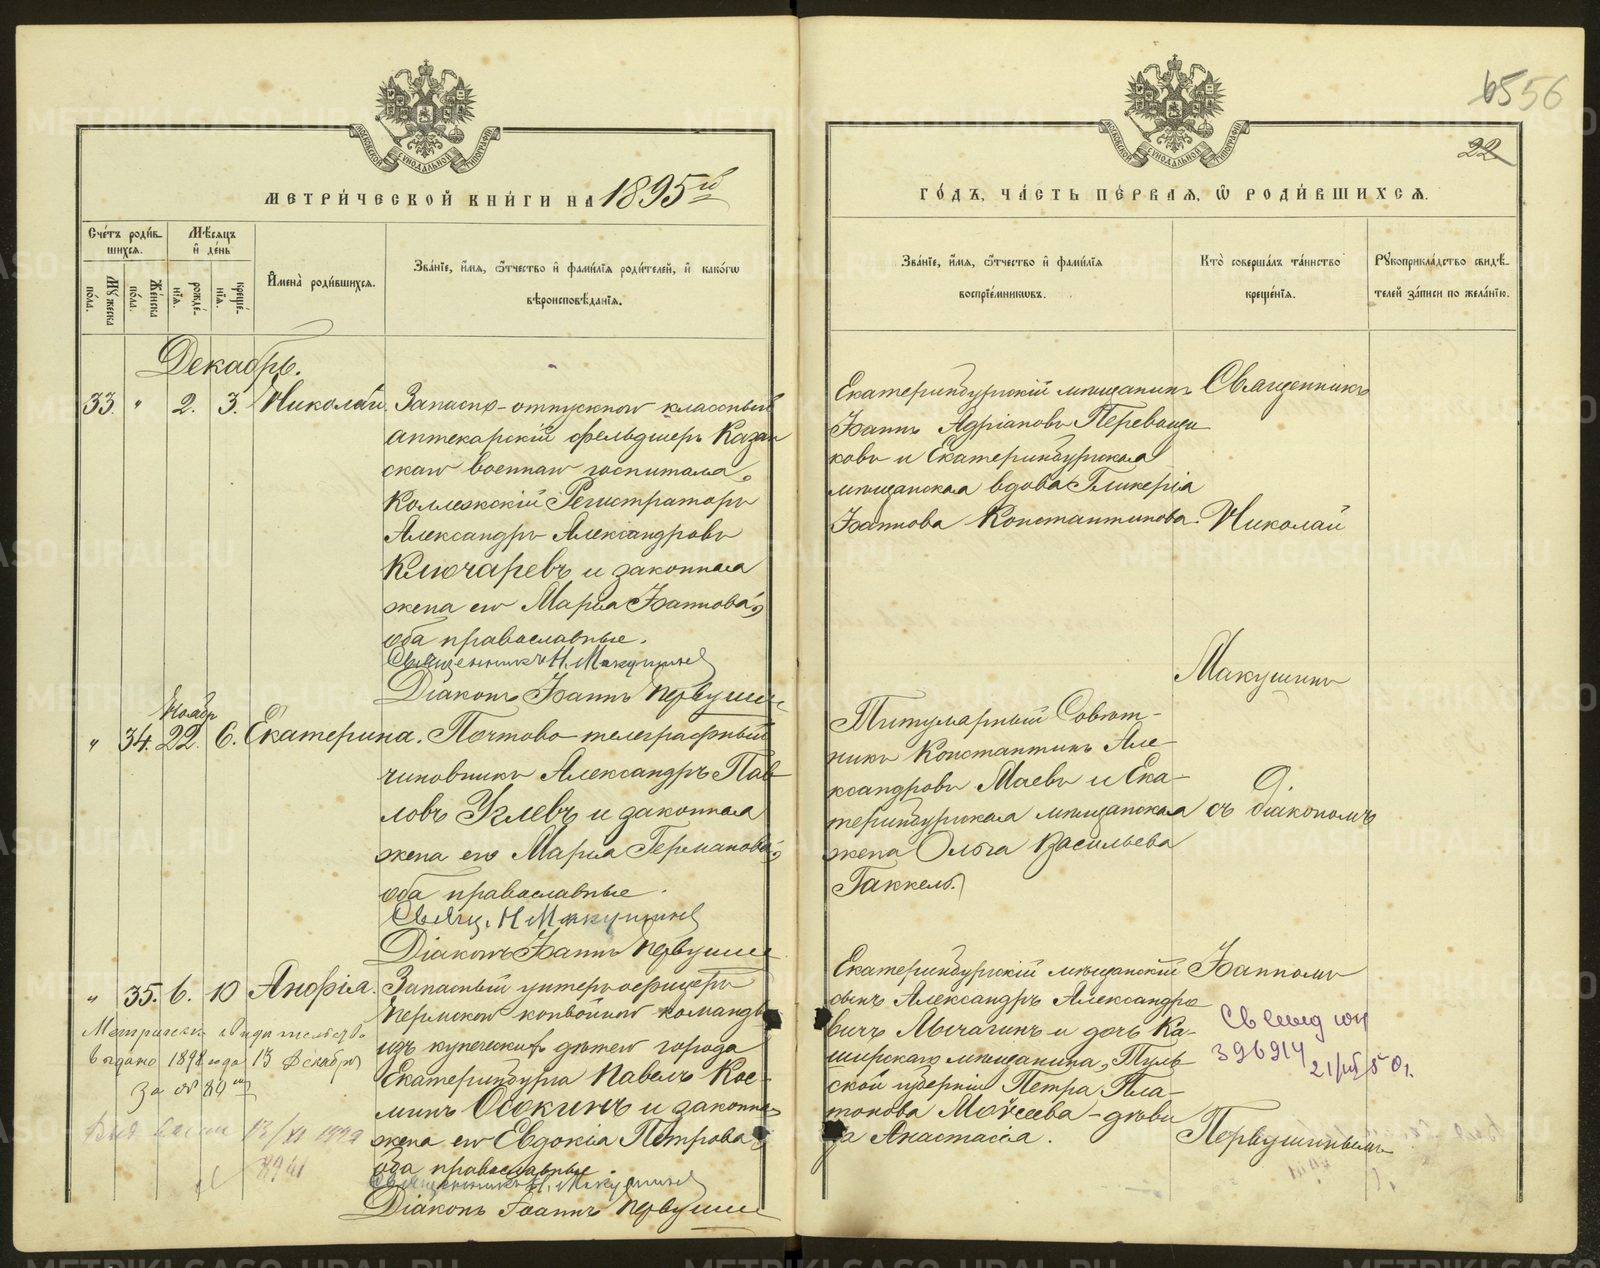 65 56
22
МОСКОВСКОЙ СИНОДАЛЬНОЙ ТИПОГРАФІИ
МОСКОВСКОЙ СИНОДАЛЬНОЙ ТИПОГРАФІИ
МЕТРИ́ЧЕСКОЙ КНИ́ГИ НА 1895й
ГО́ДЪ, ЧА́СТЬ ПЕ́РВАЯ, Ѡ РОДИ́ВШИХСЯ.
Сче́тъ роди́в-
шихся.
Му́жеска по́ла.
Же́нска по́ла.
Мѣ́сяцъ
и҆ де́нь
рожде́-
нїя.
креще́-
нїя.
И҆мена̀ роди́вшихся.
Зва́нїе, и҆́мя, ѻ҆́тчество и҆ фами́лїя роди́телей, и҆ како́гѡ
вѣроисповѣ́данїя.
Зва́нїе, и҆́мя, ѻ҆́тчество и҆ фами́лїя
воспрїе́мникѡвъ.
Кто̀ соверша́лъ та́инство
креще́нїя.
Рꙋкоприкла́дство свидѣ́-
телей за́писи по жела́нїю.
Декабрь.
33. " 2. 3. Николай.
Запасно-отпускной классный
аптекарскій фельдшеръ Казан
скаго военнаго госпиталя,
Коллежскій Регистраторъ
Александръ Александровъ
Ключаревъ и законная
жена его Марія Іоаннова,
оба православные.
Священникъ Н. Макушинъ
Діаконъ Іоаннъ Первушин
Екатеринбургскій мѣщанинъ
Іоаннъ Адріановъ Перевощи
ковъ и Екатеринбургская
мѣщанская вдова Гликерія
Іоаннова Константинова.
Священникъ
Николай
Макушинъ
Ноябр
" 34. 22. 6. Екатерина.
Почтово-телеграфный
чиновникъ Александръ Пав
ловъ Углевъ и законная
жена его Марія Германова,
оба православные.
Свящ. Н Макушинъ
Діаконъ Іоаннъ Первушин
Титулярный Совѣт-
никъ Константинъ Але-
ксандровъ Маевъ и Ека-
теринбургская мѣщанская
жена Ольга Васильева
Гаккель.
съ діакономъ
" 35. 6. 10 Анфіса.
Запасный унтеръ-офицеръ
Пермской конвойной команды
изъ купеческихъ дѣтей города
Екатеринбурга Павелъ Кос-
минъ Осокинъ и законная
жена его Евдокія Петрова,
оба православные
Священникъ Н. Макушинъ
Діаконъ Іоаннъ Первушин
Екатеринбургскій мѣщанскій
сынъ Александръ Александро
вичъ Лычагинъ и дочь Ка-
ширскаго мѣщанина, Туль
ской губерніи Петра Пла-
тонова Моѵсеева - дѣви
ца Анастасія.
Іоанномъ
Первушинымъ
Метрическ свидѣтельство
выдано 1898 года 13 Декабря
за № 80
13/XI 1929
Св
396914
METRIKI.GASO-URAL.RU